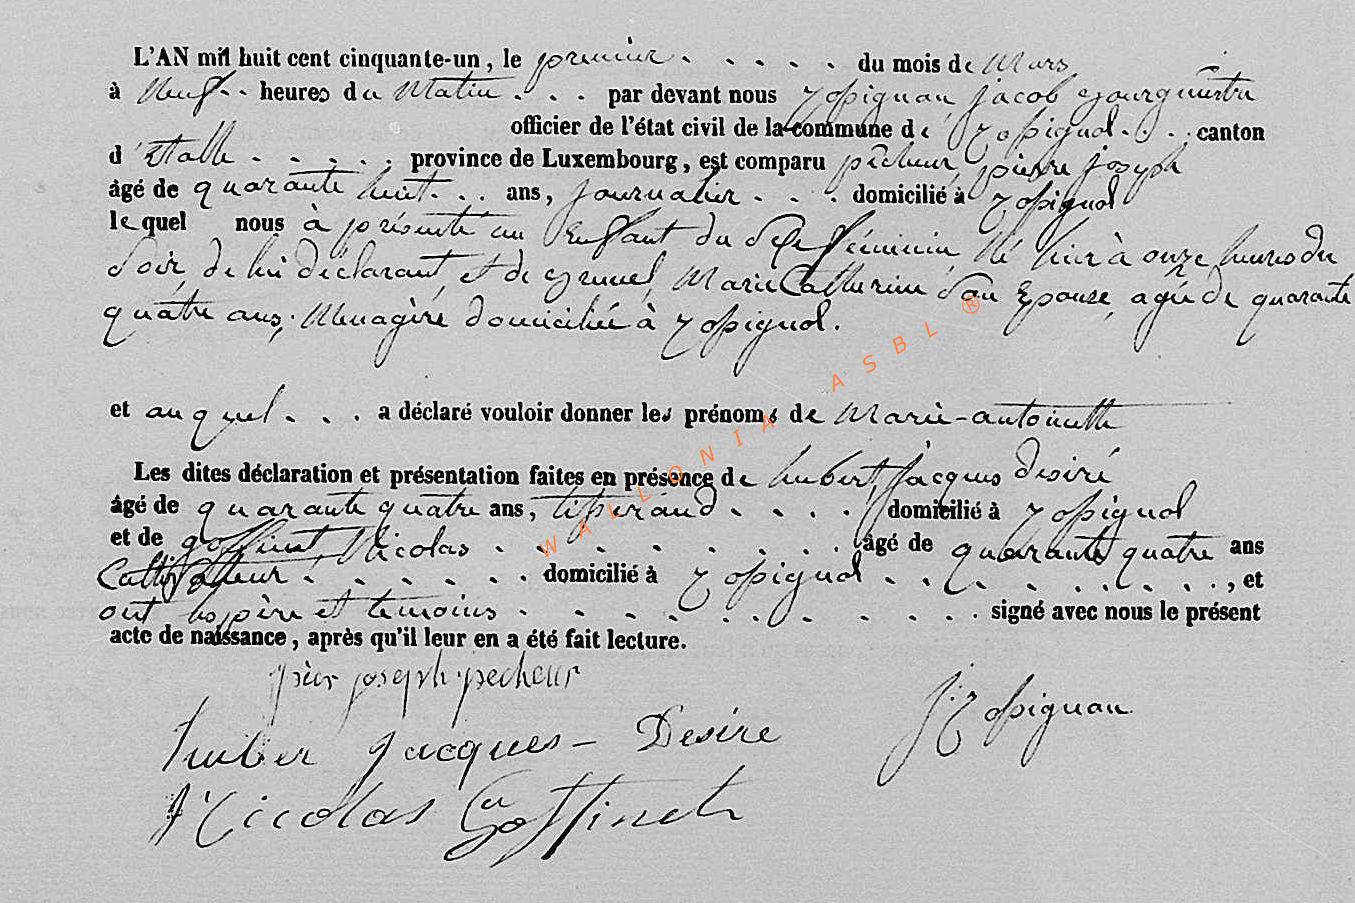 L'AN mil huit cent cinquante-un, le premier . . . . . du mois de Mars
à Neuf . . heures du Matin . . . par devant nous Jopignan jacob Bourguemetre
officier de l'état civil de la commune de Jopignol . . . canton
d'Etalle . . . . . province de Luxembourg, est comparu pêcheur, pierre joseph
âgé de quarante huit . . . ans, journalier . . . domicilié à Jopignol
lequel nous à présenté un Enfant du Sexe féminin, Né hier à onze heures du
Soir, de lui déclarant, et de Marie Catherine Son Epouse, agée de quarante
quatre ans, Menagère domiciliée à Jopignol.
et auquel . . . a déclaré vouloir donner les prénoms de Marie-antoinette
Les dites déclaration et présentation faites en présence de hubert, jacques desiré
âgé de quarante quatre ans, tisserand . . . . domicilié à Jopignol
et de goffinet, Nicolas . . . . . . . . . âgé de quarante quatre ans
Cultivateur . . . . . . domicilié à Jopignol . . . . . . . . ., et
ont les père et temoins . . . . . . . . . . signé avec nous le présent
acte de naissance, après qu'il leur en a été fait lecture.
joseph pecheur
J. Jopignan
huber jacques - Desire
Nicolas Goffinet
WALLONIA ASBL ®